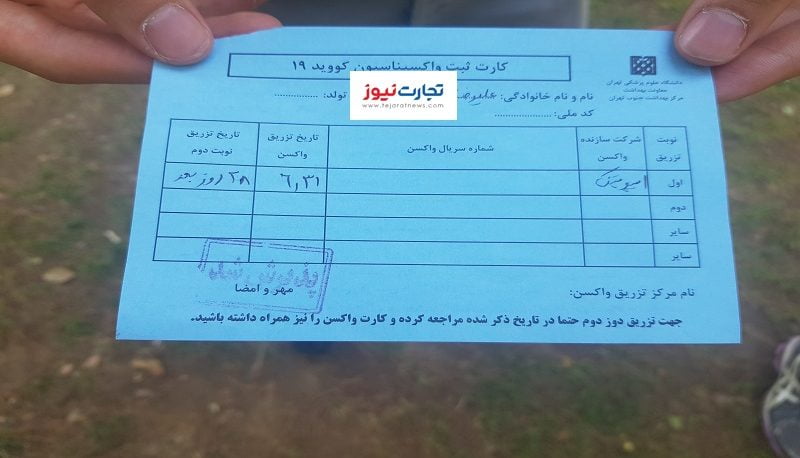 کارت ثبت واکسیناسیون کووید ۱۹
دانشگاه علوم پزشکی تهران
معاونت بهداشت
مرکز بهداشت جنوب تهران
نام و نام خانوادگی: تولد: ................
کد ملی: ......................
تجارت‌نیوز
www.tejaratnews.com
نوبت تزریق شرکت سازنده واکسن شماره سریال واکسن تاریخ تزریق واکسن تاریخ تزریق نوبت دوم
اول ۶٫۳۱ ۲۸ روز بعد
دوم
سایر
سایر
نام مرکز تزریق واکسن:
مهر و امضا
جهت تزریق دوز دوم حتما در تاریخ ذکر شده مراجعه کرده و کارت واکسن را نیز همراه داشته باشید.